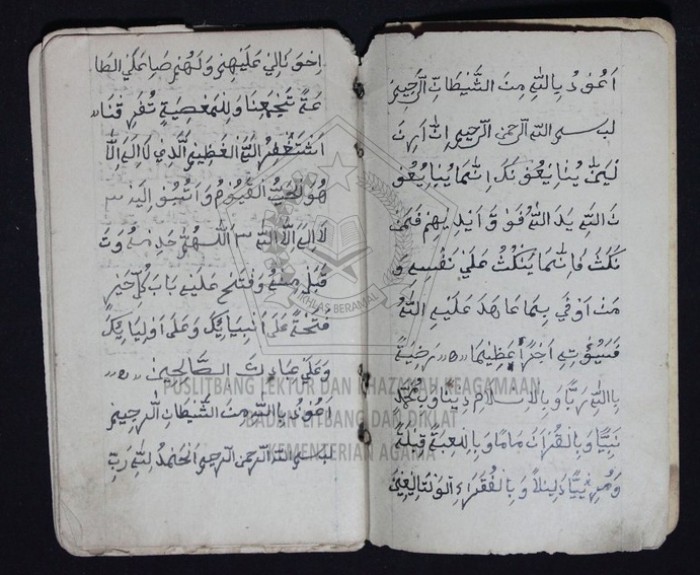 اَعُوْذُ بِاللّٰهِ مِنَ الشَّيْطَانِ الرَّجِيْمِ
بسم اللّٰه الرّحمن الرّحيم اِنَّ
يُبَايِعُوْنَكَ اِنَّمَا يُبَايِعُوْ
نَ اللّٰهَ يَدُ اللّٰهِ فَوْقَ اَيْدِيْهِمْ فَمَنْ
نَكَثَ فَاِنَّمَا يَنْكُثُ عَلٰى نَفْسِهِ وَ
مَنْ اَوْفٰي بِمَا عَاهَدَ عَلَيْهِ اللّٰهَ
فَسَيُؤْتِيْهِ اَجْرًا عَظِيْمًا رَضِيْتُ
بِاللّٰهِ رَبًّا وَبِالْاِسْلَامِ دِيْنًا وَبِمُحَمَّدٍ
نَبِيًّا وَبِالْقُرْاَنِ مَامًا وَبِالْكَعْبَةِ قِبْلَةً
دَلِيْلاً وَبِالْفُقَرَاءِ
عَلَيْهِمْ وَلَهُمْ الطَا
عَةُ تَجْمَعُنَا وَلِلْمَعْصِيَةِ تُفَرِّقُنَا
اَسْتَغْفِرُ اللّٰهَ الْعَظِيْمَ الَّذِيْ لَا اِلٰهَ اِلَّا
هُوَ الْحَيُّ الْقَيُّوْمُ وَاَتُوْبُ اِلَيْهِ ٣
لَا اِلٰهَ اِلَّا اللّٰهُ ٣ اَللّٰهُمَّ خُذْ مِنْهُ وَتَ
قَبَّلْ مِنْهُ وَفْتَحْ عَلَيْهِ بَابَ كُلِّ خَيْرٍ
فَتَحْتَهُ عَلٰى اَنْبِيَائِكَ وَعَلٰى اَوْلِيَائِكَ
وَعَلٰى عِبَادِكَ الصَّالِحِيْنَ
اَعُوْذُ بِاللّٰهِ مِنَ الشَّيْطَانِ الرَّجِيْمِ
بسم اللّٰه الرّحمن الرّحيم اَلْحَمْدُ لِلّٰهِ رَبِّ
IKHLAS BERAMAL
PUSLITBANG LEKTUR DAN KHAZANAH KEAGAMAAN
BADAN LITBANG DAN DIKLAT
KEMENTERIAN AGAMA